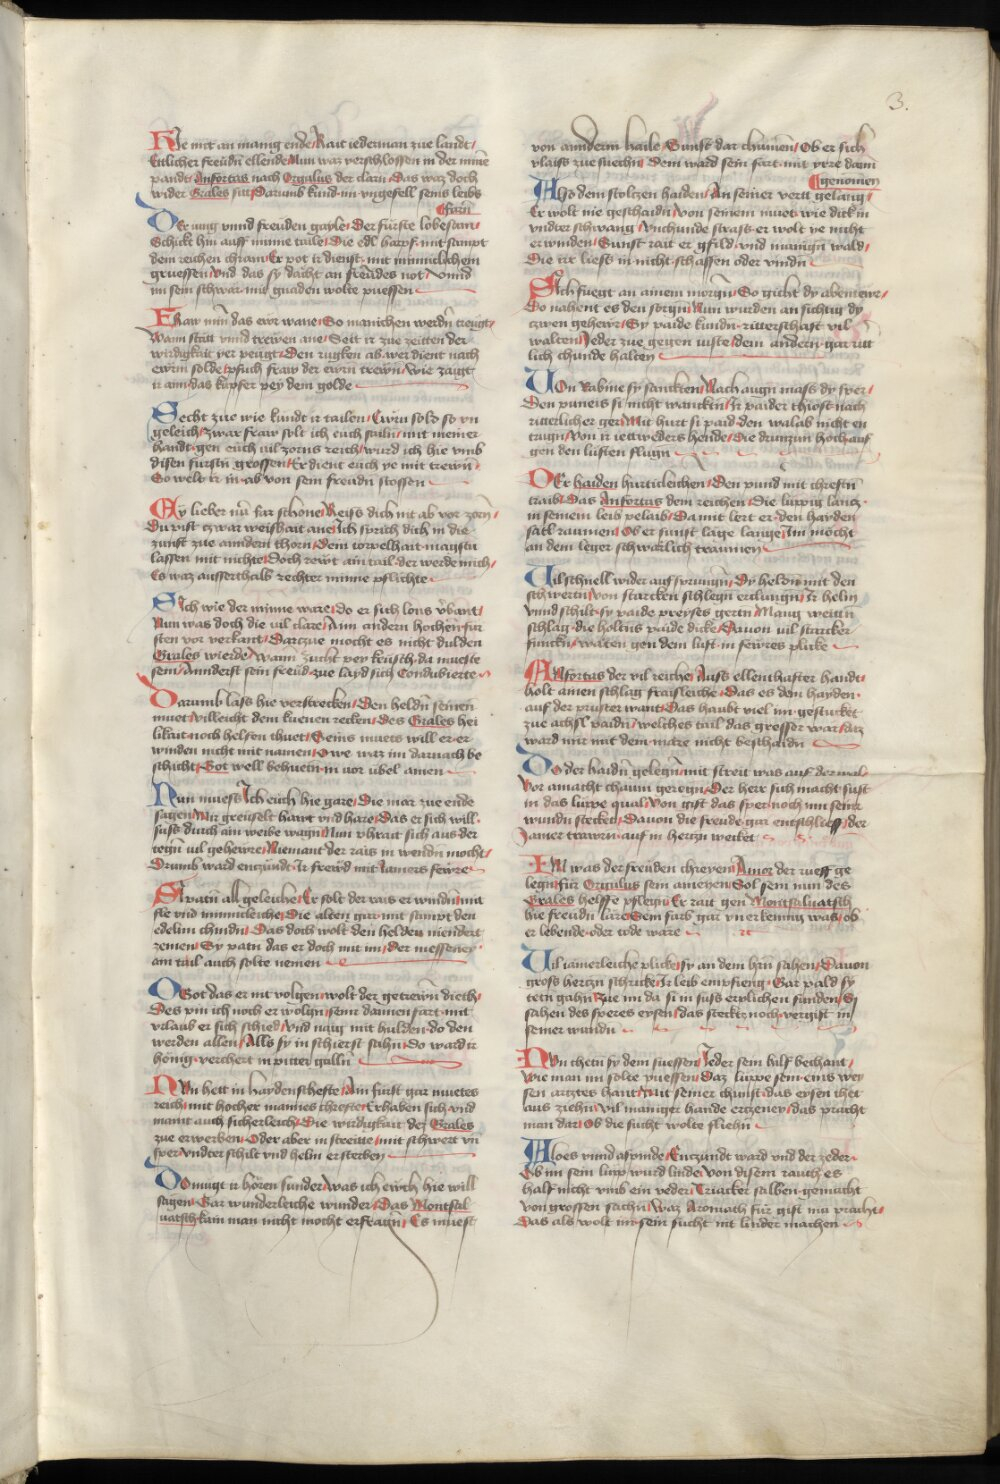 3.
Hie mit an manig ende Rait iederman zue landt
Etlicher freudn ellende Nun war verschlossen in der minne
pandt Anfortas nach Orgulus der clarn Das waz doch
wider Grales sitt Darumb kund im ungefell seins leibs
farn
Der iung vnnd freuden gayle Der fürste lobesam
Schickt hin auff minne taile Die edl harpf mit sampt
dem reichen chram Er pot ir dienst mit minniclichem
gruessen Vnd das sy dächt an freudes not vnnd
im sein schwär mit gnaden wolte puessen
wann statt vnnd trewen ane Seit ir zue zeitten der
wirdigkait ver peugt Den rugken ab wer dient nach
ewrm solde pfuch fraw der ewrn trewn wie zaigt
ir ann das kupfer pey dem golde
Secht zue wie kundt ir tailen Ewrn sold so vn
geleich zwar fraw solt ich euch mit meiner
handt gen euch vil zorns reich wurd ich hie vmb
disen fürstn grossen Er dient euch ye mit trewn
So welt ir in ab von sein freudn stossen
Ey lieber nu far schone Reiss dich nit ab vor zorn
Du pist zwar weishait ane Ich sprich dich in die
zunfft zue anndern thorn Dein torvelhait magstu
lassen mit nichte Doch rewt ain tail der werde mich
Es waz ausserthalb rechter minne pflichte
Sich wie der minne ware do er sich
Nun was doch die vil clare Ainn andern hochen für
sten vor verkant Darzue mocht es nicht dulden
Grales wierde wann zucht pey keusch da mueste
sein Annderst sein freud zue layd sich Condwierte
Darumb lass hie verstrecken Den heldn seinen
muet villeicht dem kuenen recken Des Grales hei
likait noch helfen thuet Seins muets will er er
winden nicht mit namen Owe waz im darnach be
schicht Got well behuetn in vor übel amen
Nun muess Ich euch hie gare Die mär zue ende
sagen Mir greuselt hawt vnd hare Das er sich will
suss durch ain weibe wagn Nun vhrait sich aus der
degn vil gehewre Niemant der rais in wendn mocht
Drumb ward enzündt Ir freud mit Jamers fewre
Si patn all geleiche Er solt der rais er windn mit
fle vnd inniccleiche Die alten gar mit sampt den
edelen chindn Das doch wolt den helden niendert
zemen Sy patn das er doch mit im der messener
ain tail auch solte nemen
O Got das er nit volgen wolt der getrewn dieth
Des pin ich noch er wolgn seinr dannen fart mit
vrlaub er sich schied Vnd naig mit hulden do den
werden allen Alls sy in schierst sahn Do ward ir
hönig verchert in pitter gallen
Nun hett in haydenscheffte Ain fürst gar muetes
reich mit hocher mannes chreffte Erhaben sich vnd
maint auch sicherleich Die wirdigkait des Grales
zue erwerben Oder aber in streitte mit schwert vn
sper vndter schilt vnd helm ersterben
Do mügt ir hören sunder was ich ewch hie will
sagen Gar wunderleiche wunder Das Montsal
uatsch kain man nicht mocht erfragn Es muest
von annderm haile Sunst dar chumen Ob er sich
vlaiss zue suechn Dem ward sein fart mit yrre dann
genomen
Also dem stoltzen haiden An seiner vertt gelang
Er wolt nie geschaidn von seinem muet wie dick in
vndter schwang Vnchunde strass er wolt ye nicht
er winden Sunst rait er gfild vnd manign wald
Die irr liess in nicht schaffen oder vindn
Sich fuegt an ainem morgn So gicht dy abentewr
Do nahent es den sorgn Nun wurden an sichtig dy
zwen gehewr Sy paide kundn ritterschafft vil
walten Jeder zue gegen iuste dem andern gar ritt
lich chunde halten
Von rabine sy sanckten Nach augn mass dy sper
Den puneis si nicht wanckten Ir paider thiost nach
ritterlicher ger Mit hurt si paid den walab nicht en
trugn Von ir ietweders hende Die drunzun hoch auf
gen den lüften flugn
Der haiden hurticleichen Den pund mit chrefftn
traib Das Anfortas dem reichen Die lüppig lantz
in seinem leib pelaib Da mit lert er den hayden
satl raumen Ob er sunst läge lange Im möcht
an dem leger schwärlich traumen
Vil schnell wider auf sprungn Dy heldn mit den
schwertn von starcken schlegn erclungn Ir helm
vnnd schilt sy paide preyses gertn Manig weittn
schlag die holtns paide dicke Dauon vil starcker
funckn wäten gen dem luft in fewres plicke
Anfortas der vil reiche Auss ellenthaffter handt
holt ainen schlag fraisleiche Das es den hayden
auf der pruster want Das haubt viel im gestucket
zue achsl paidn welches tail das grosser war daz
ward mir mit dem märe nicht beschaidn
Do der haidn gelegn mit streit was auf der wal
Vor amacht chaum geregn Der herr sich macht sust
in das lüppe qual Von gift das sper noch im seinr
wundn stecket Dauon die freude gar entschlieff der
Jamer trawrn auf in hertzn wecket
Ein was der freuden chreyen Amor der rueff ge
legn für Orgulus sein ameyen Sol sein nun des
Grales helffe pflegn Er rait gen Montsaluatsch
hie freudn läre Sein farb gar vnerkennig was ob
er lebende oder tode wäre
Vil iamerleiche plicke sy an dem hrn sahen Dauon
gross hertzn schricke Ir leib empfieng Gar pald sy
tetn gahn Zue im da si in suss erplichen funden Si
sahen des speres eysen das steckt noch vergift in
seiner wundn
Nun thetn sy dem suessen Jeder sein hilf bechant
wie man im solte puessen Daz lüppe sein eins wey
sen artztes hant Mit seiner chunst das eysen thet
aus ziehn vil maniger hande ertzeney das pracht
man dar Ob die sucht wolte fliehn
Aloes vnnd aspinde Entzündt ward vnd der zeder
Ob im sein lüpp wurd linde Von disem rauch es
half nicht vmb ein veder Triacker salben gemacht
von grossen sachn Waz Aromath für gift nu pracht
Das als wolt im sein sucht nit linder machen